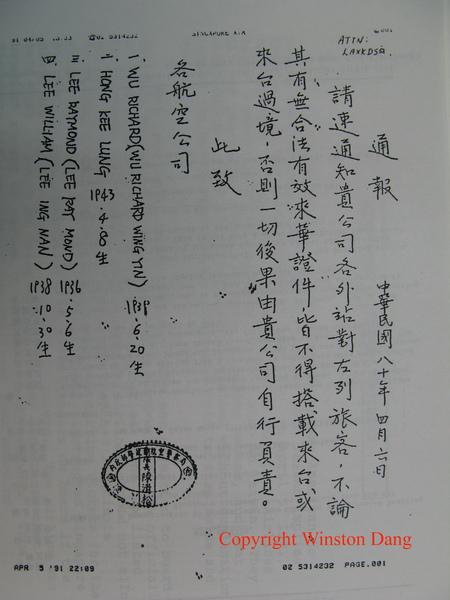 SINGAPORE AIR
ATTN:
通報 中華民國八十年四月六日
請速通知貴公司各外站對左列旅客,不論
其有無合法有效來華證件,皆不得搭載來台或
來台過境,否則一切後果由貴公司自行負責。
此致
各航空公司
一、WU RICHARD(WU RICHARD WING YIN) 1939.6.20生
二、HONG KEE LUNG 1943.4.8生
三、LEE RAYMOND(LEE RAY MOND) 1936.5.6生
四、LEE WILLIAM(LEE ING NAN) 1938.10.30生
Copyright Winston Dang
APR 5 '91 22:09
02 5314232 PAGE.001